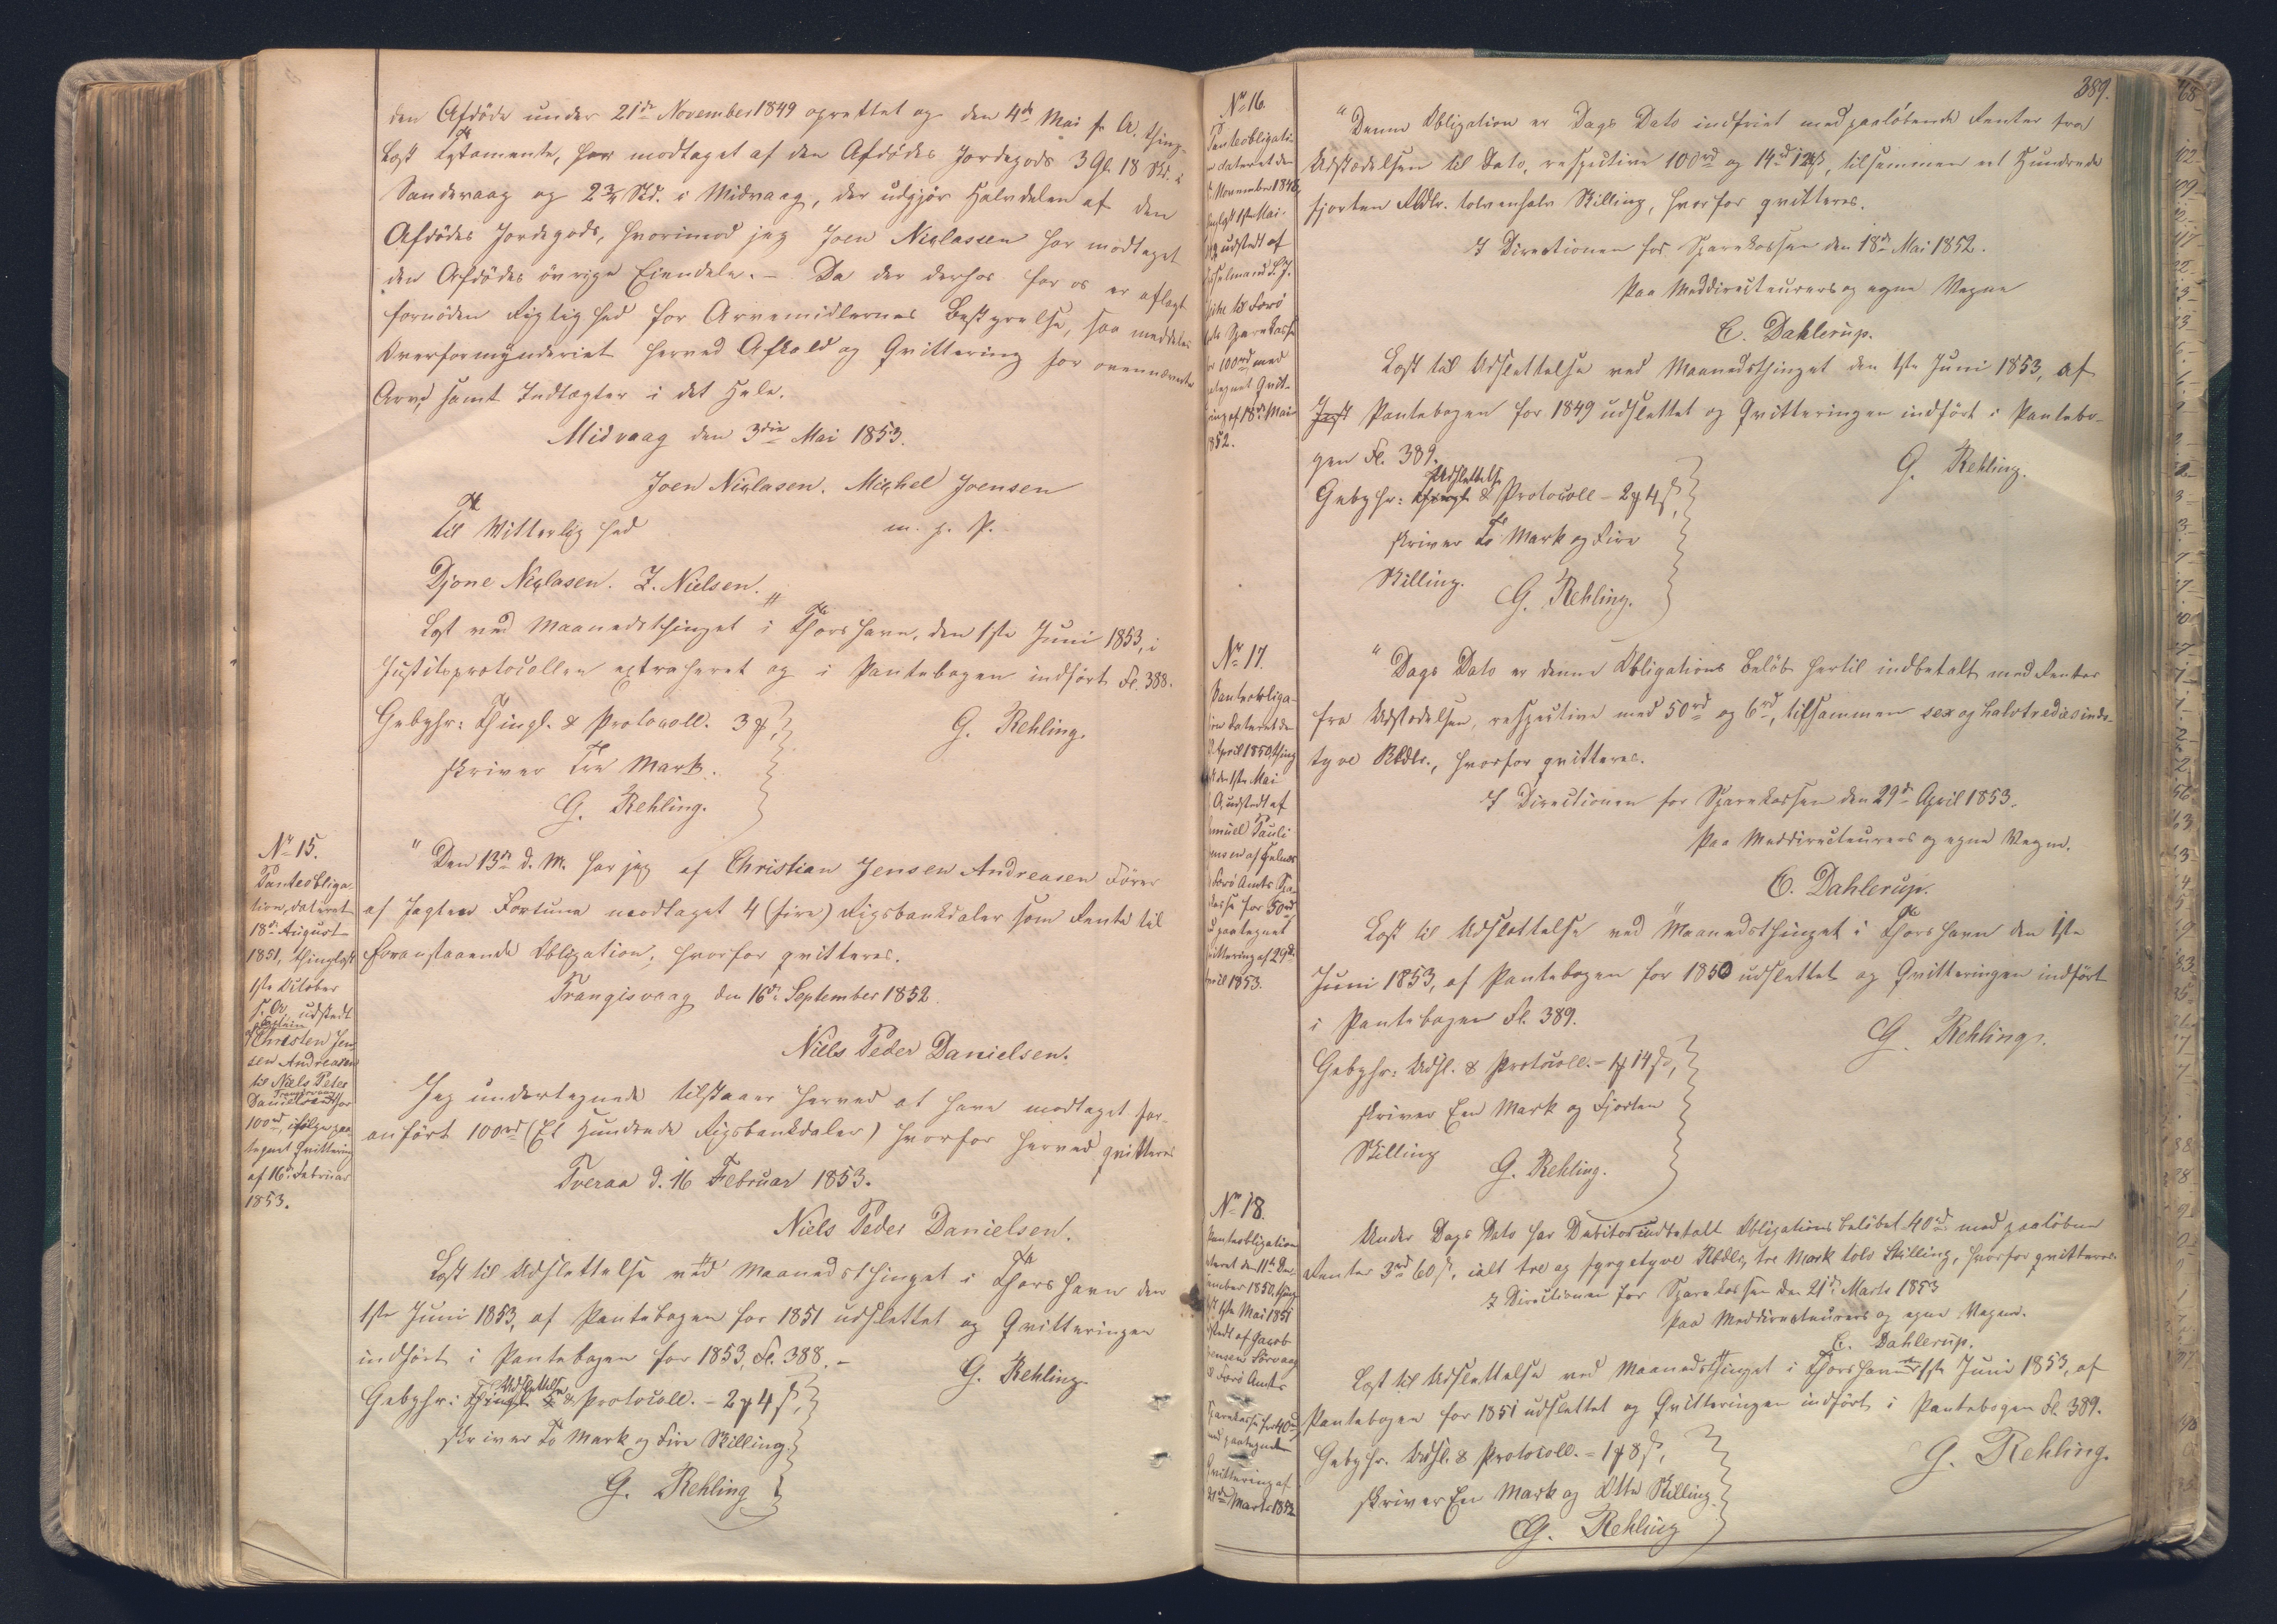 den Afdøde under 21de November 1849 oprettet og den 4de Mai s. A. thing-
læst Testamente, har modtaget af den Afdødes Jordegods 3 Gl. 18 Sk. i
Sandevaag og 2¾ Sk. i Midvaag, der udgjør Halvdelen af den
Afdødes Jordegods, hvorimod jeg Joen Niclassen har modtaget
den Afdødes øvrige Eiendele. – Da der derhos for os er aflagt
fornøden Rigtighed for Arvemidlernes Bestyrelse, saa meddeles
Overformynderiet herved Afkald og Qvittering for ovennævnte
Arv, samt Indtægter i det Hele.
Midvaag den 3die Mai 1853.
Joen Niclasen. Michel Joensen
Til Vitterlighed m. f. P.
Djone Niclasen. Z. Nielsen. "
Læst ved Maanedsthinget i Thorshavn, den 1ste Juni 1853, i
Justitsprotocollen extraheret og i Pantebogen indført Fl. 388.
Gebyhr: Thingl. & Protocoll. 3 ꝟ,
G. Rehling.
skriver Tre Mark.
G. Rehling.
No 15.
Panteobliga-
tion, dateret
18de August
1851, thinglæst
1ste October
s. A. udstedt
af Christen Jen-
sen Andreasen
til Niels Peter
Danielsen for
100rd, ifølge paa-
tegnet Qvittering
af 16de Februar
1853.
" Den 13de d. M. har jeg af Christian Jensen Andreasen Fører
af Jagten Fortuna modtaget 4 (fire) Rigsbankdaler som Rente til
foranstaaende Obligation, hvorfor qvitteres.
Trangisvaag den 16de September 1852.
Niels Peder Danielsen.
Jeg undertegnede tilstaaer herved at have modtaget for-
anført 100rd (Et Hundrede Rigsbankdaler) hvorfor herved qvitteres
Tveraa d. 16 Februar 1853.
Niels Peder Danielsen.
Læst til Udslettelse ved Maanedsthinget i Thorshavn den
1ste Juni 1853, af Pantebogen for 1851 udslettet og Qvitteringen
indført i Pantebogen for 1853, Fl. 388. –
G. Rehling.
Gebyhr: Udslettelse & Protocoll. – 2 ꝟ 4 ß,
skriver To Mark og Fire Skilling.
G. Rehling
389.
No 16.
Panteobligati-
on dateret den
November 1848,
1ste Mai
udstedt af
til Færø
Amts Sparekasse
for 100rd med
paategnet Qvit-
tering af 18de Mai
1852.
" Denne Obligation er Dags Dato indfriet med paaløbende Renter fra
Udstædelsen til Dato, respective 100rd og 14rd 12ß, tilsammen eet Hundrede
fjorten Rbdlr. tolvenhalv Skilling, hvorfor qvitteres.
I Directionen for Sparekassen den 18de Mai 1852.
Paa Meddirecteurers og egne Vegne
C. Dahlerup.
Læst til Udslettelse ved Maanedsthinget den 1ste Juni 1853, af
Pantebogen for 1849 udslettet og Qvitteringen indført i Pantebo-
gen Fl. 389.
G. Rehling.
Gebyhr: Udslettelse & Protocoll – 2 ꝟ 4 ß,
skriver To Mark og Fire
Skilling.
G. Rehling.
No 17.
Panteobliga-
tion dateret den
April 1850, thing-
læst den 1ste Mai
s. A. udstedt af
Samuell Pauli
Færø Amts Spa-
rekasse for 50rd,
med paategnet
Qvittering af 29de
April 1853.
" Dags Dato er denne Obligations Beløb hertil indbetalt med Renter
fra Udstædelsen, respective med 50rd og 6rd, tilsammen sex og halvtredsinds-
tyve Rbdlr., hvorfor qvitteres.
I Directionen for Sparekassen den 29de April 1853.
Paa Meddirecteurers og egne Vegne.
C. Dahlerup.
Læst til Udslettelse ved Maanedsthinget i Thorshavn den 1ste
Juni 1853, af Pantebogen for 1850 udslettet og Qvitteringen indført
i Pantebogen Fl. 389.
G. Rehling.
Gebyhr: Udsl. & Protocoll. – 1 ꝟ 14 ß,
skriver Een Mark og Fjorten
Skilling
G. Rehling.
No 18.
Panteobligation
dateret den 11te De-
cember 1850, thing-
læst 1ste Mai 1851
udstedt af Jacob
Jensen Sørvaag
til Færø Amts
Sparekasse for 40rd
med paategnet
Qvittering af
21de Marts 1853
Under Dags Dato har Debitor indbetalt Obligations Beløbet 40rd med paaløbne
Renter 3rd 60ß, ialt tre og fyrgetyve Rbdlr, tre Mark tolv Skilling, hvorfor qvitteres.
I Directionen for Sparekassen den 21de Marts 1853
Paa Meddirecteurers og egne Vegne.
C. Dahlerup.
Læst til Udslettelse ved Maanedsthinget i Thorshavn den 1ste Juni 1853, af
Pantebogen for 1851 udslettet og Qvitteringen indført i Pantebogen Fl. 389.
G. Rehling.
Gebyhr. Udsl. & Protocoll. – 1 ꝟ 8 ß,
skriver En Mark og Otte Skilling.
G. Rehling